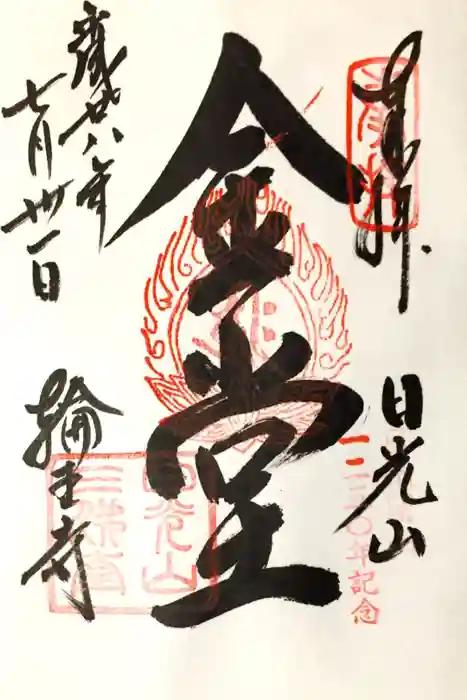 奉拝
日光山
一二五〇年記念
金堂
平成廿八年
七月卅一日
輪王寺
日光山
三佛堂